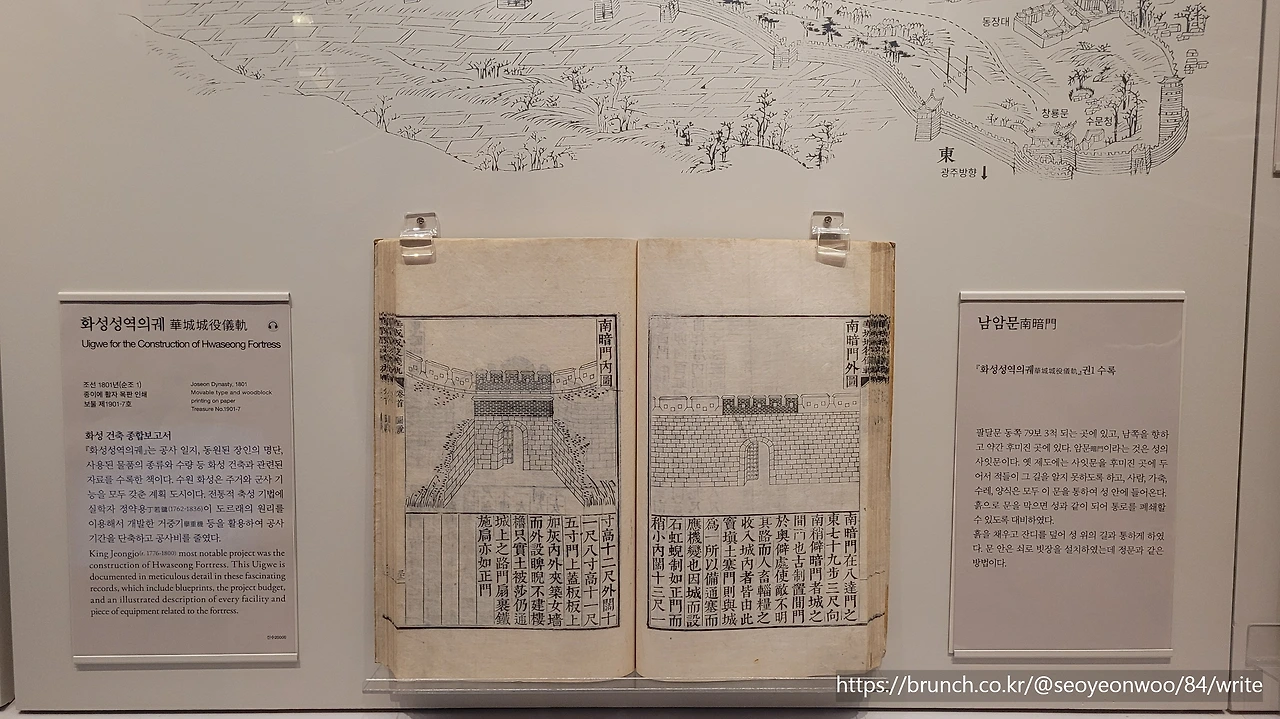 동장대
창룡문
수문청
東
광주방향
화성성역의궤 華城城役儀軌
Uigwe for the Construction of Hwaseong Fortress
조선 1801년(순조 1)
종이에 활자 목판 인쇄
보물 제1901-7호
Joseon Dynasty, 1801
Movable type and woodblock
printing on paper
Treasure No.1901-7
화성 건축 종합보고서
『화성성역의궤』는 공사 일지, 동원된 장인의 명단,
사용된 물품의 종류와 수량 등 화성 건축과 관련된
자료를 수록한 책이다. 수원 화성은 주거와 군사 기
능을 모두 갖춘 계획 도시이다. 전통적 축성 기법에
실학자 정약용丁若鏞(1762-1836)이 도르래의 원리를
이용해서 개발한 거중기擧重機 등을 활용하여 공사
기간을 단축하고 공사비를 줄였다.
King Jeongjo(r. 1776-1800) most notable project was the
construction of Hwaseong Fortress. This Uigwe is
documented in meticulous detail in these fascinating
records, which include blueprints, the project budget,
and an illustrated description of every facility and
piece of equipment related to the fortress.
南暗門外圖
南暗門在八達門之
東七十九步三尺向
南稍僻暗門者城之
間門也古制置間門
於奧僻處使敵不明
其路而人畜輜糧之
收入城內者皆由此
實塡土塞門則與城
爲一所以備通塞而
應機變也因城而設
石虹蜺制如正門而
稍小內闊十三尺一
南暗門內圖
寸高十二尺外闊十
一尺八寸高十一尺
五寸門上蓋板板上
加灰內外夾築女墻
而外設睥睨不建樓
檣只實土被莎仍通
城上之路門扇裹鐵
施扃亦如正門
남암문南暗門
『화성성역의궤華城城役儀軌』권1 수록
팔달문 동쪽 79보 3척 되는 곳에 있고, 남쪽을 향하
고 약간 후미진 곳에 있다. 암문暗門이라는 것은 성의
사잇문이다. 옛 제도에는 사잇문을 후미진 곳에 두
어서 적들이 그 길을 알지 못하도록 하고, 사람, 가축,
수레, 양식은 모두 이 문을 통하여 성 안에 들어온다.
흙으로 문을 막으면 성과 같이 되어 통로를 폐쇄할
수 있도록 대비하였다.
흙을 채우고 잔디를 덮어 성 위의 길과 통하게 하였
다. 문 안은 쇠로 빗장을 설치하였는데 정문과 같은
방법이다.
https://brunch.co.kr/@seoyeonwoo/84/write